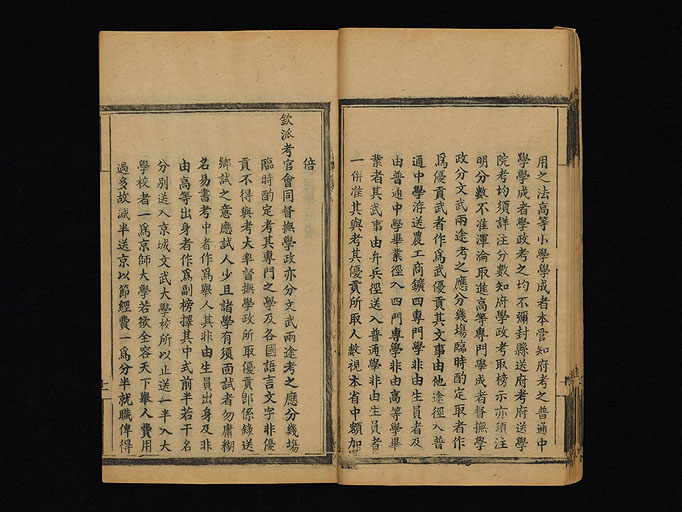 用之法高等小學學成者本管知府考之普通中
學學成者學政考之均不彌封縣送府考府送學
院考均須詳注分數知府學政考取榜示亦須注
明分數不准渾淪取進高等專門學成者督撫學
政分文武兩途考之應分幾場臨時酌定取者作
爲優貢武者作爲武優貢其文事由他途徑入普
通中學済送農工商鑛四專門學非由生員者及
由普通中學畢業徑入四門專學非由高等學畢
業者其武事由弁兵徑送入普通學非由生員者
一併准其與考其優貢所取人數視本省中額加
倍
欽派考官會同督撫學政亦分文武兩途考之應分幾場
臨時酌定考其專門之學及各國語言文字非優
貢不得與考大率督撫學政所取優貢即係錄送
鄉試之意應試人少且諸學有須面試者勿庸糊
名易書考中者作爲舉人其非由生員出身及非
由高等出身者作爲副榜擇其中式前半若干名
分別送入京城文武大學校所以止送一半入大
學校者一爲京師大學若欲全容天下舉人費用
過多故減半送京以節經費一爲分半就職俾得